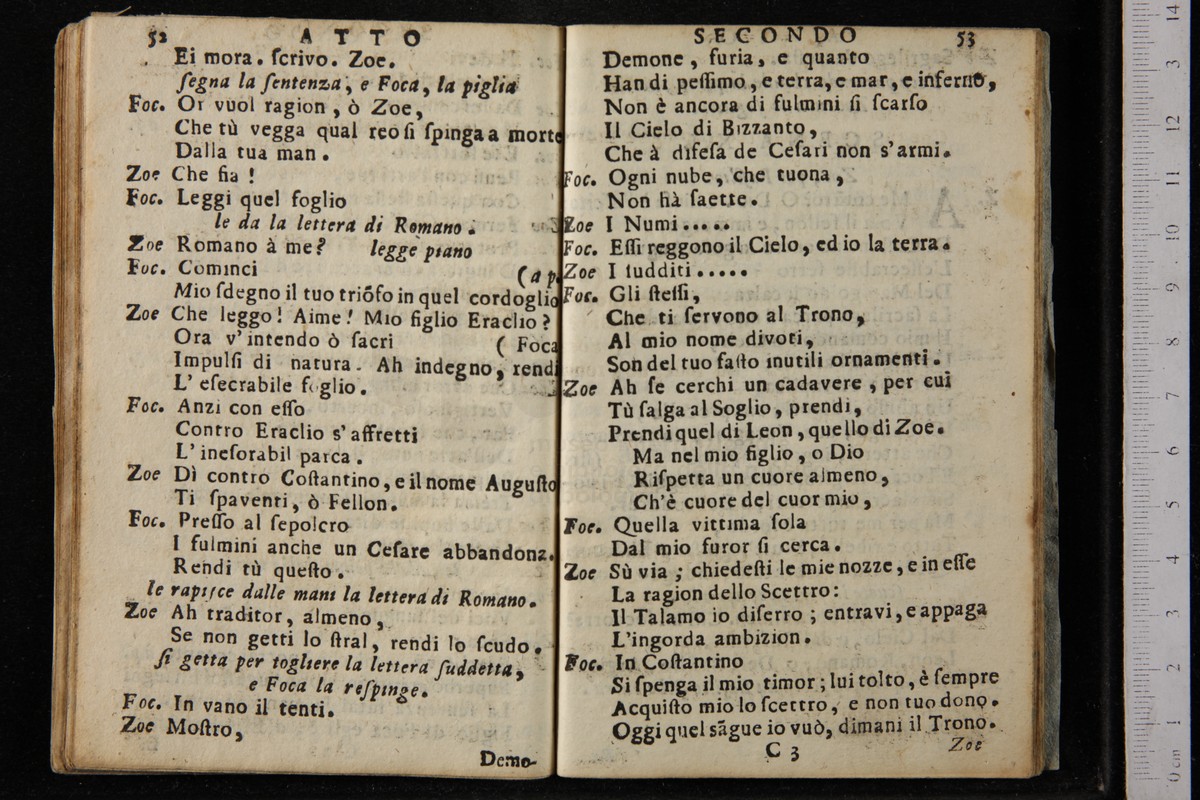 52 ATTO
Ei mora. ſcrivo. Zoe.
ſegna la ſentenza, e Foca, la piglia
Foc. Or vuol ragion, ò Zoe,
Che tù vegga qual reo ſi ſpinga a morte
Dalla tua man.
Zoe Che fia!
Foc. Leggi quel foglio
le da la lettera di Romano.
Zoe Romano à me? legge piano
Foc. Cominci (a p.
Mio ſdegno il tuo triõfo in quel cordoglio
Zoe Che leggo! Aime! Mio figlio Eraclio?
Ora v'intendo ò ſacri (Foca
Impulſi di natura. Ah indegno, rendi
L'eſecrabile foglio.
Foc. Anzi con eſſo
Contro Eraclio s'affretti
L'ineſorabil parca.
Zoe Dì contro Coſtantino, e il nome Auguſto
Ti ſpaventi, ò Fellon.
Foc. Preſſo al ſepolcro
I fulmini anche un Ceſare abbandona.
Rendi tù queſto.
le rapiſce dalle mani la lettera di Romano.
Zoe Ah traditor, almeno,
Se non getti lo ſtral, rendi lo ſcudo.
ſi getta per togliere la lettera ſuddetta,
e Foca la reſpinge.
Foc. In vano il tenti.
Zoe Moſtro,
Demo-
SECONDO 53
Demone, furia, e quanto
Han di peſſimo, e terra, e mar, e inferno,
Non è ancora di fulmini ſi ſcarſo
Il Cielo di Bizzanto,
Che à difeſa de Ceſari non s'armi.
Foc. Ogni nube, che tuona,
Non hà ſaette.
Zoe I Numi.....
Foc. Eſſi reggono il Cielo, ed io la terra.
Zoe I ſudditi.....
Foc. Gli ſteſſi,
Che ti ſervono al Trono,
Al mio nome divoti,
Son del tuo faſto inutili ornamenti.
Zoe Ah ſe cerchi un cadavere, per cui
Tù ſalga al Soglio, prendi,
Prendi quel di Leon, quello di Zoe.
Ma nel mio figlio, o Dio
Riſpetta un cuore almeno,
Ch'è cuore del cuor mio,
Foc. Quella vittima ſola
Dal mio furor ſi cerca.
Zoe Sù via; chiedeſti le mie nozze, e in eſſe
La ragion dello Scettro:
Il Talamo io diferro; entravi, e appaga
L'ingorda ambizion.
Foc. In Coſtantino
Si ſpenga il mio timor; lui tolto, è ſempre
Acquiſto mio lo ſcettro, e non tuo dono.
Oggi quel sãgue io vuò, dimani il Trono.
C 3 Zoe
0 cm 1 2 3 4 5 6 7 8 9 10 11 12 3 14